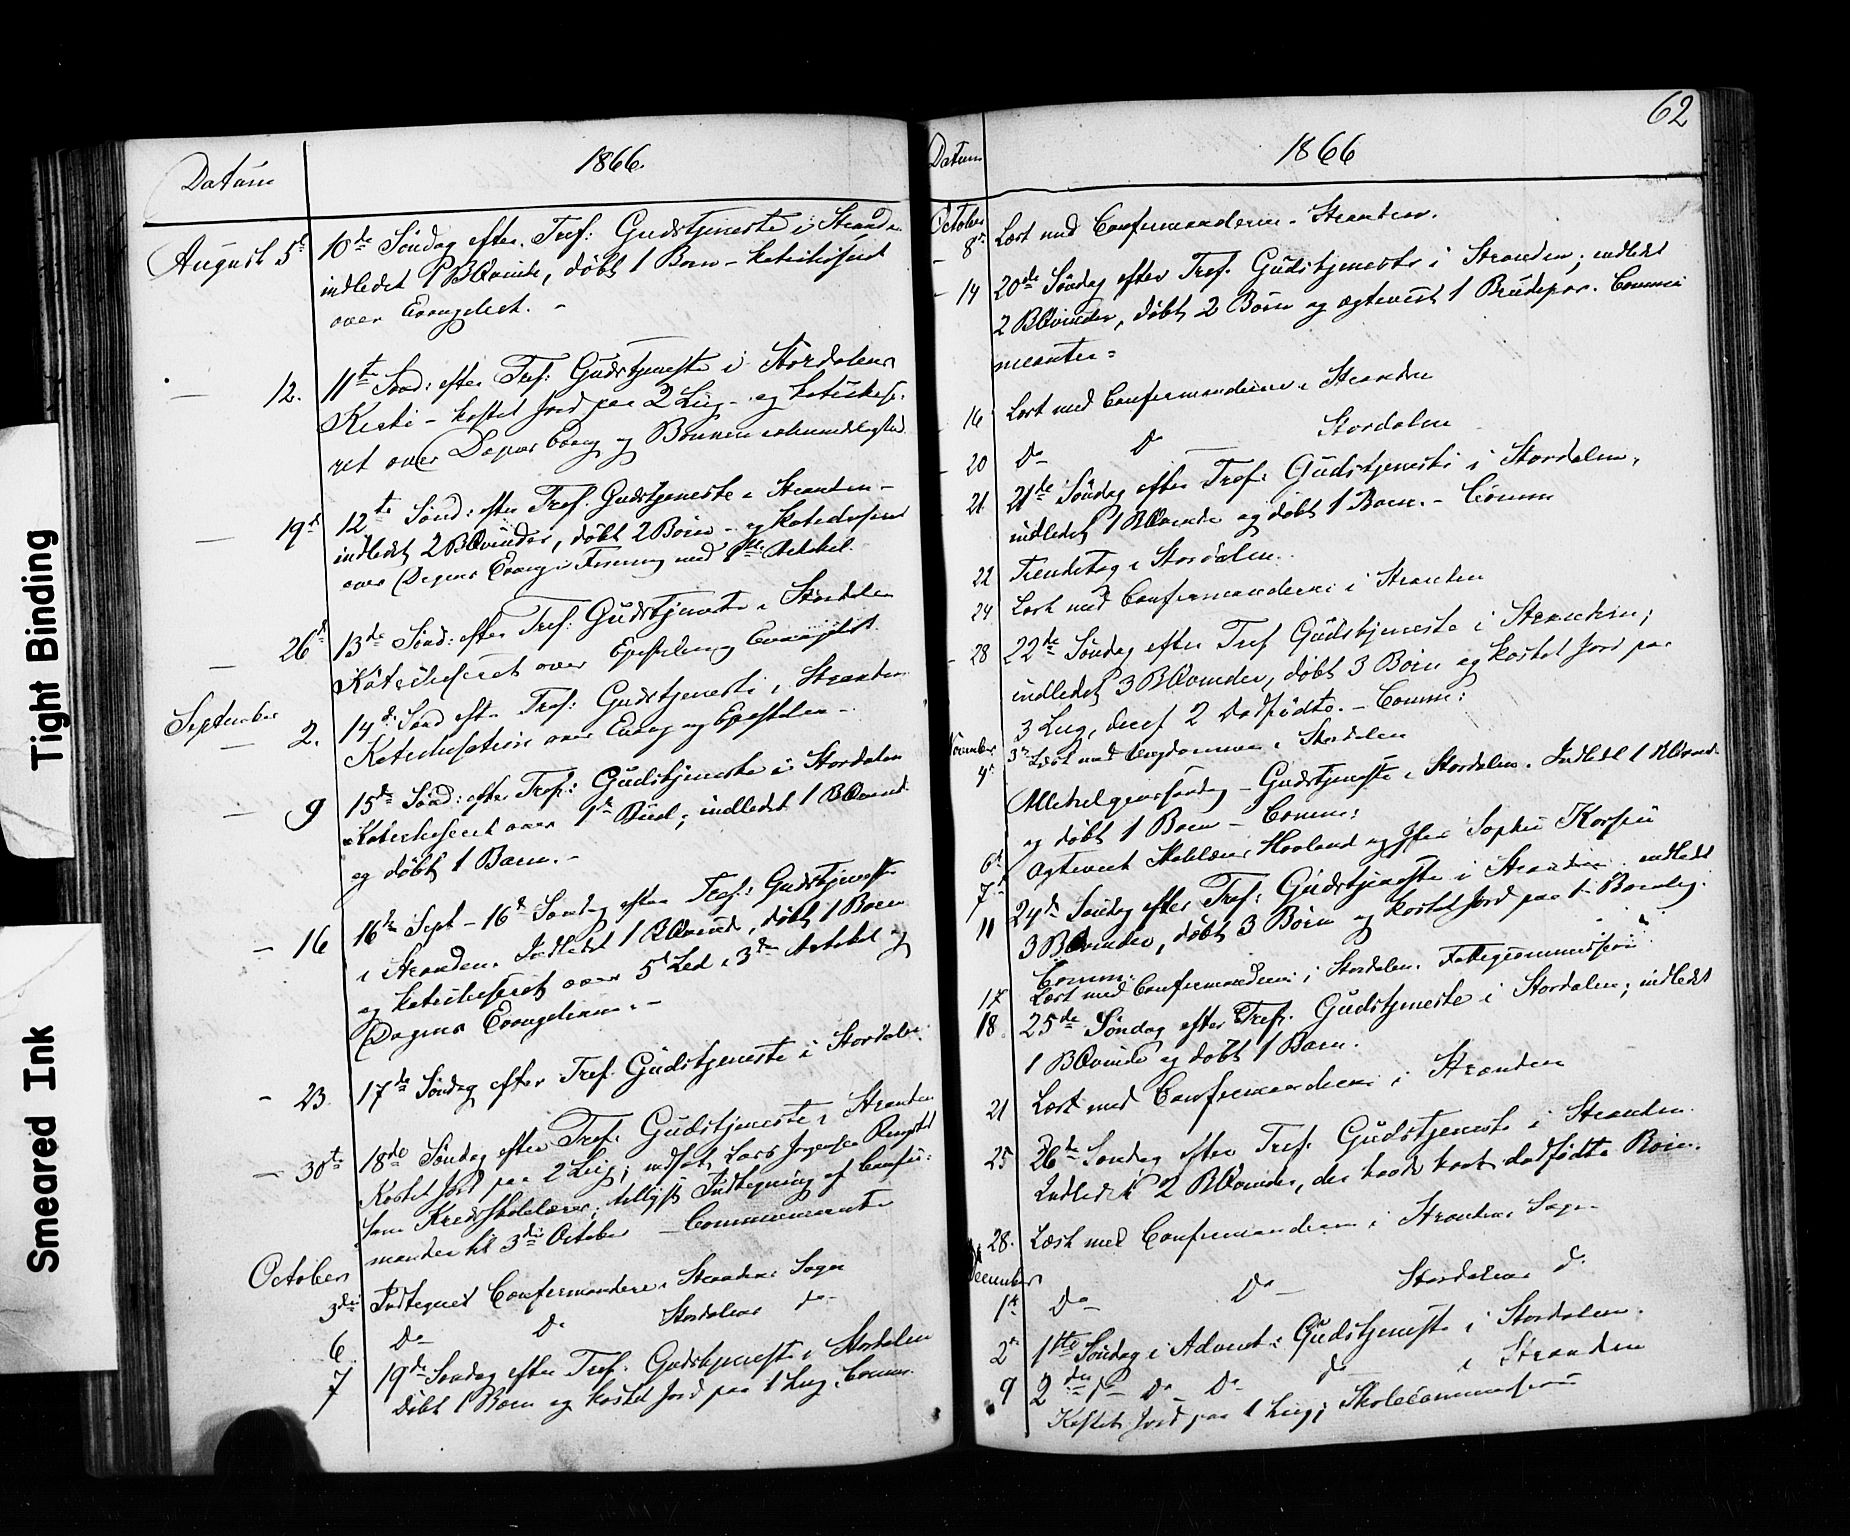 Datum
1866.
August 5te 10de Søndag efter Tref: Gudstjeneste i Stranden
indledet 1 BQvinde, døbt 1 Barn - katechiseret
over Evangeliet. -
12. 11te Sønd: efter Tref: Gudstjeneste i Stordalens
Kirke - kastet Jord paa 2 Liig - og katechise-
ret over Dagens Evang og Bønnen
19de 12te Sønd: efter Tref. Gudstjeneste i Stranden -
indledet 2 BQvinder, døbt 2 Børn - og katechiseret
over Dagens Evang i Forening med 1ste Artikel.
26de 13de Sønd: efter Tref: Gudstjeneste i Stordalen
Katechiseret over Epistelen og Evangeliet.
September
2. 14de Sønd efter Tref: Gudstjeneste i Stranden
Katechisation over Evang og Epistelen -
9 15de Sønd: efter Tref: Gudstjeneste i Stordalen
Katechiseret over 1ste Bud; indledet 1 BQvinde
og døbt 1 Barn. -
16 16de Sept - 16de Søndag efter Tref: Gudstjeneste
i Stranden. Indledet 1 BQvinde, døbt 1 Barn
og katechiseret over 5te Led i 3die Artikel og
Dagens Evangelium. -
23. 17de Søndag efter Tref: Gudstjeneste i Stordalen.
30te 18de Søndag efter Tref: Gudstjeneste i Stranden
Kastet Jord paa 2 Liig; indsat Lars Jørgensen Ringstad
som Kredsskolelærer; tillyst Indtegning af Confir:
mander til 3die October - Communicanter
October
3die Indtegnet Confirmandere i Strandens Sogn
6. Do Do Stordalens do
7 19de Søndag efter Tref: Gudstjeneste i Stordalen
Døbt 1 Barn og kastet Jord paa 1 Liig. Comm.
62
Datum
1866
October
8de Læst med Confirmanderne - Stranden.
14 20de Søndag efter Tref. Gudstjeneste i Stranden; indledt
2 BQvinder, døbt 2 Børn og ægteviet 1 Brudepar. Commu
nicanter =
16 Læst med Confirmanderne i Stranden
20 Do Do Stordalen
21. 21de Søndag efter Tref: Gudstjeneste i Stordalen,
indledet 1 BQvinde og døbt 1 Barn. - Comm
22 i Stordalen.
24 Læst med Confirmanderne i Stranden
28 22de Søndag efter Tref Gudstjeneste i Stranden;
indledet 3 BQvinder, døbt 3 Børn og kastet Jord paa
3 Liig, deraf 2 Dødfødte. - Comm:
November
3de Læst med Ungdommen i Stordalen
4de Allehelgenssøndag - Gudstjeneste i Stordalen. Indledt 1 BQvinde
og døbt 1 Barn - Comm:
6te Ægteviet Hovland og Jfr Sophie
7de
11 24de Søndag efter Tref: Gudstjeneste i Stranden. indledt
3 BQvinder, døbt 3 Børn og kastet Jord paa 1 Barnelig.
Comm:
17 Læst med Confirmanderne i Stordalen. Fattigcommission
18. 25de Søndag efter Tref: Gudstjeneste i Stordalen; indledt
1 BQvinde og døbt 1 Barn.
21 Læst med Confirmanderne i Stranden
25 26de Søndag efter Tref: Gudstjeneste i Stranden.
Indledt 2 BQvinder, der havde havt dødfødte Børn.
28. Læst med Confirmanderne i Strandens Sogn
December
1ste Do Do Stordalens do
2den 1ste Søndag i Advent: Gudstjeneste i Stordalen.
9 2den Do Do do i Stranden
Kastet Jord paa 1 Liig; Skolecommission
Tight Binding
Smeared Ink